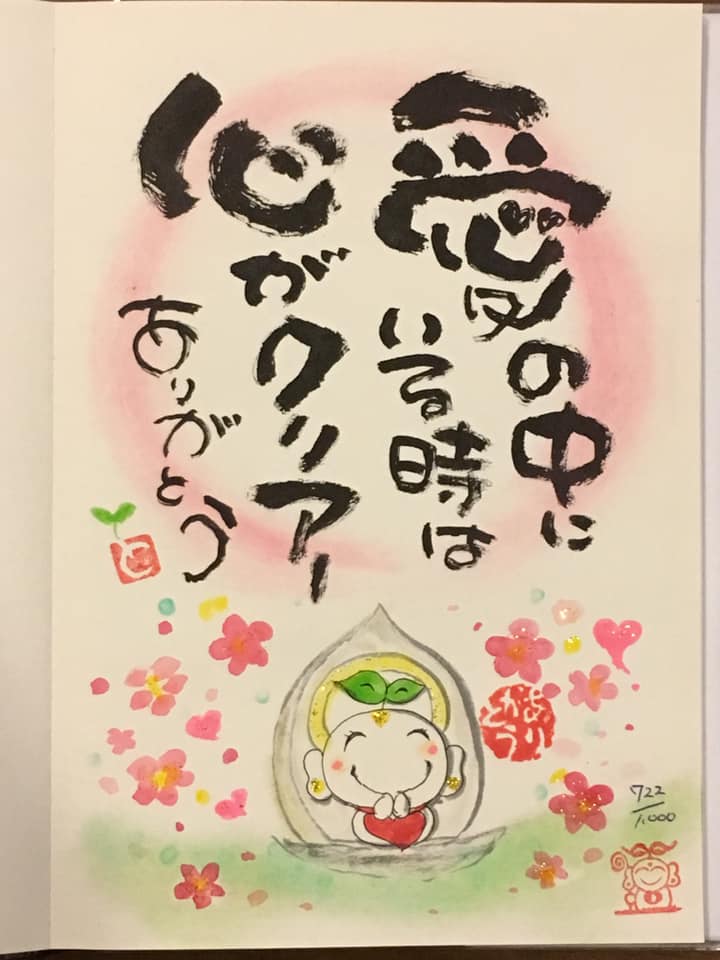 愛の中に
いる時は
心がクリアー
ありがとう
ありがとう
722/1,000